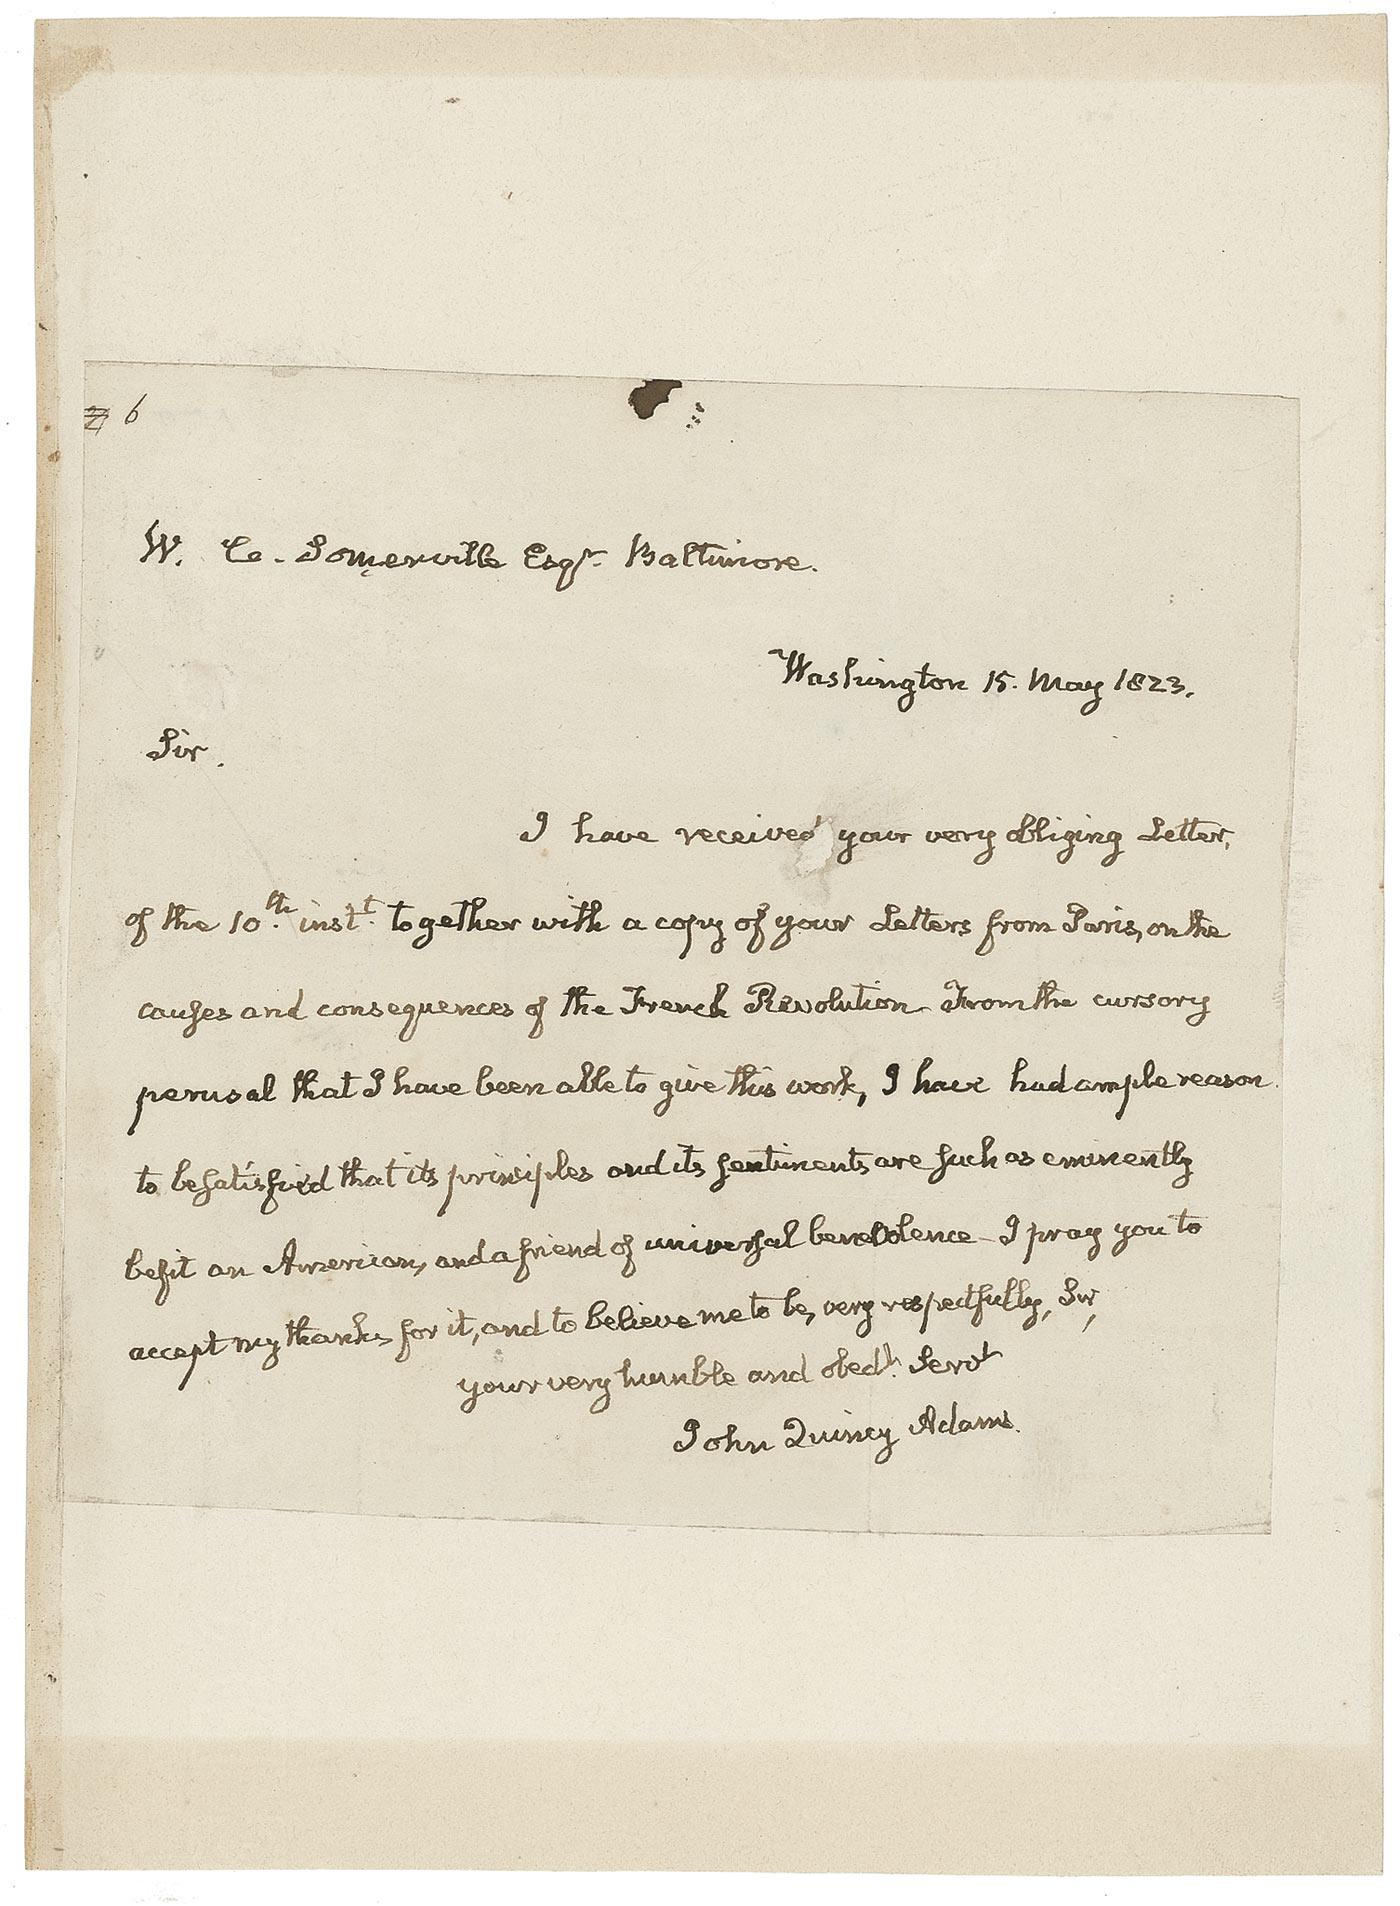 # 6
W. C. Somerville Esqr. Baltimore.
Washington 15. May 1823.
Sir.
I have received your very obliging Letter,
of the 10.th instt. together with a copy of your Letters from Paris, on the
causes and consequences of the French Revolution - From the cursory
perusal that I have been able to give this work, I have had ample reason
to be satisfied that its principles and its sentiments are such as eminently
befit an American, and a friend of universal benevolence - I pray you to
accept my thanks for it, and to believe me to be, very respectfully, Sir,
your very humble and obedt. Servt
John Quincy Adams.